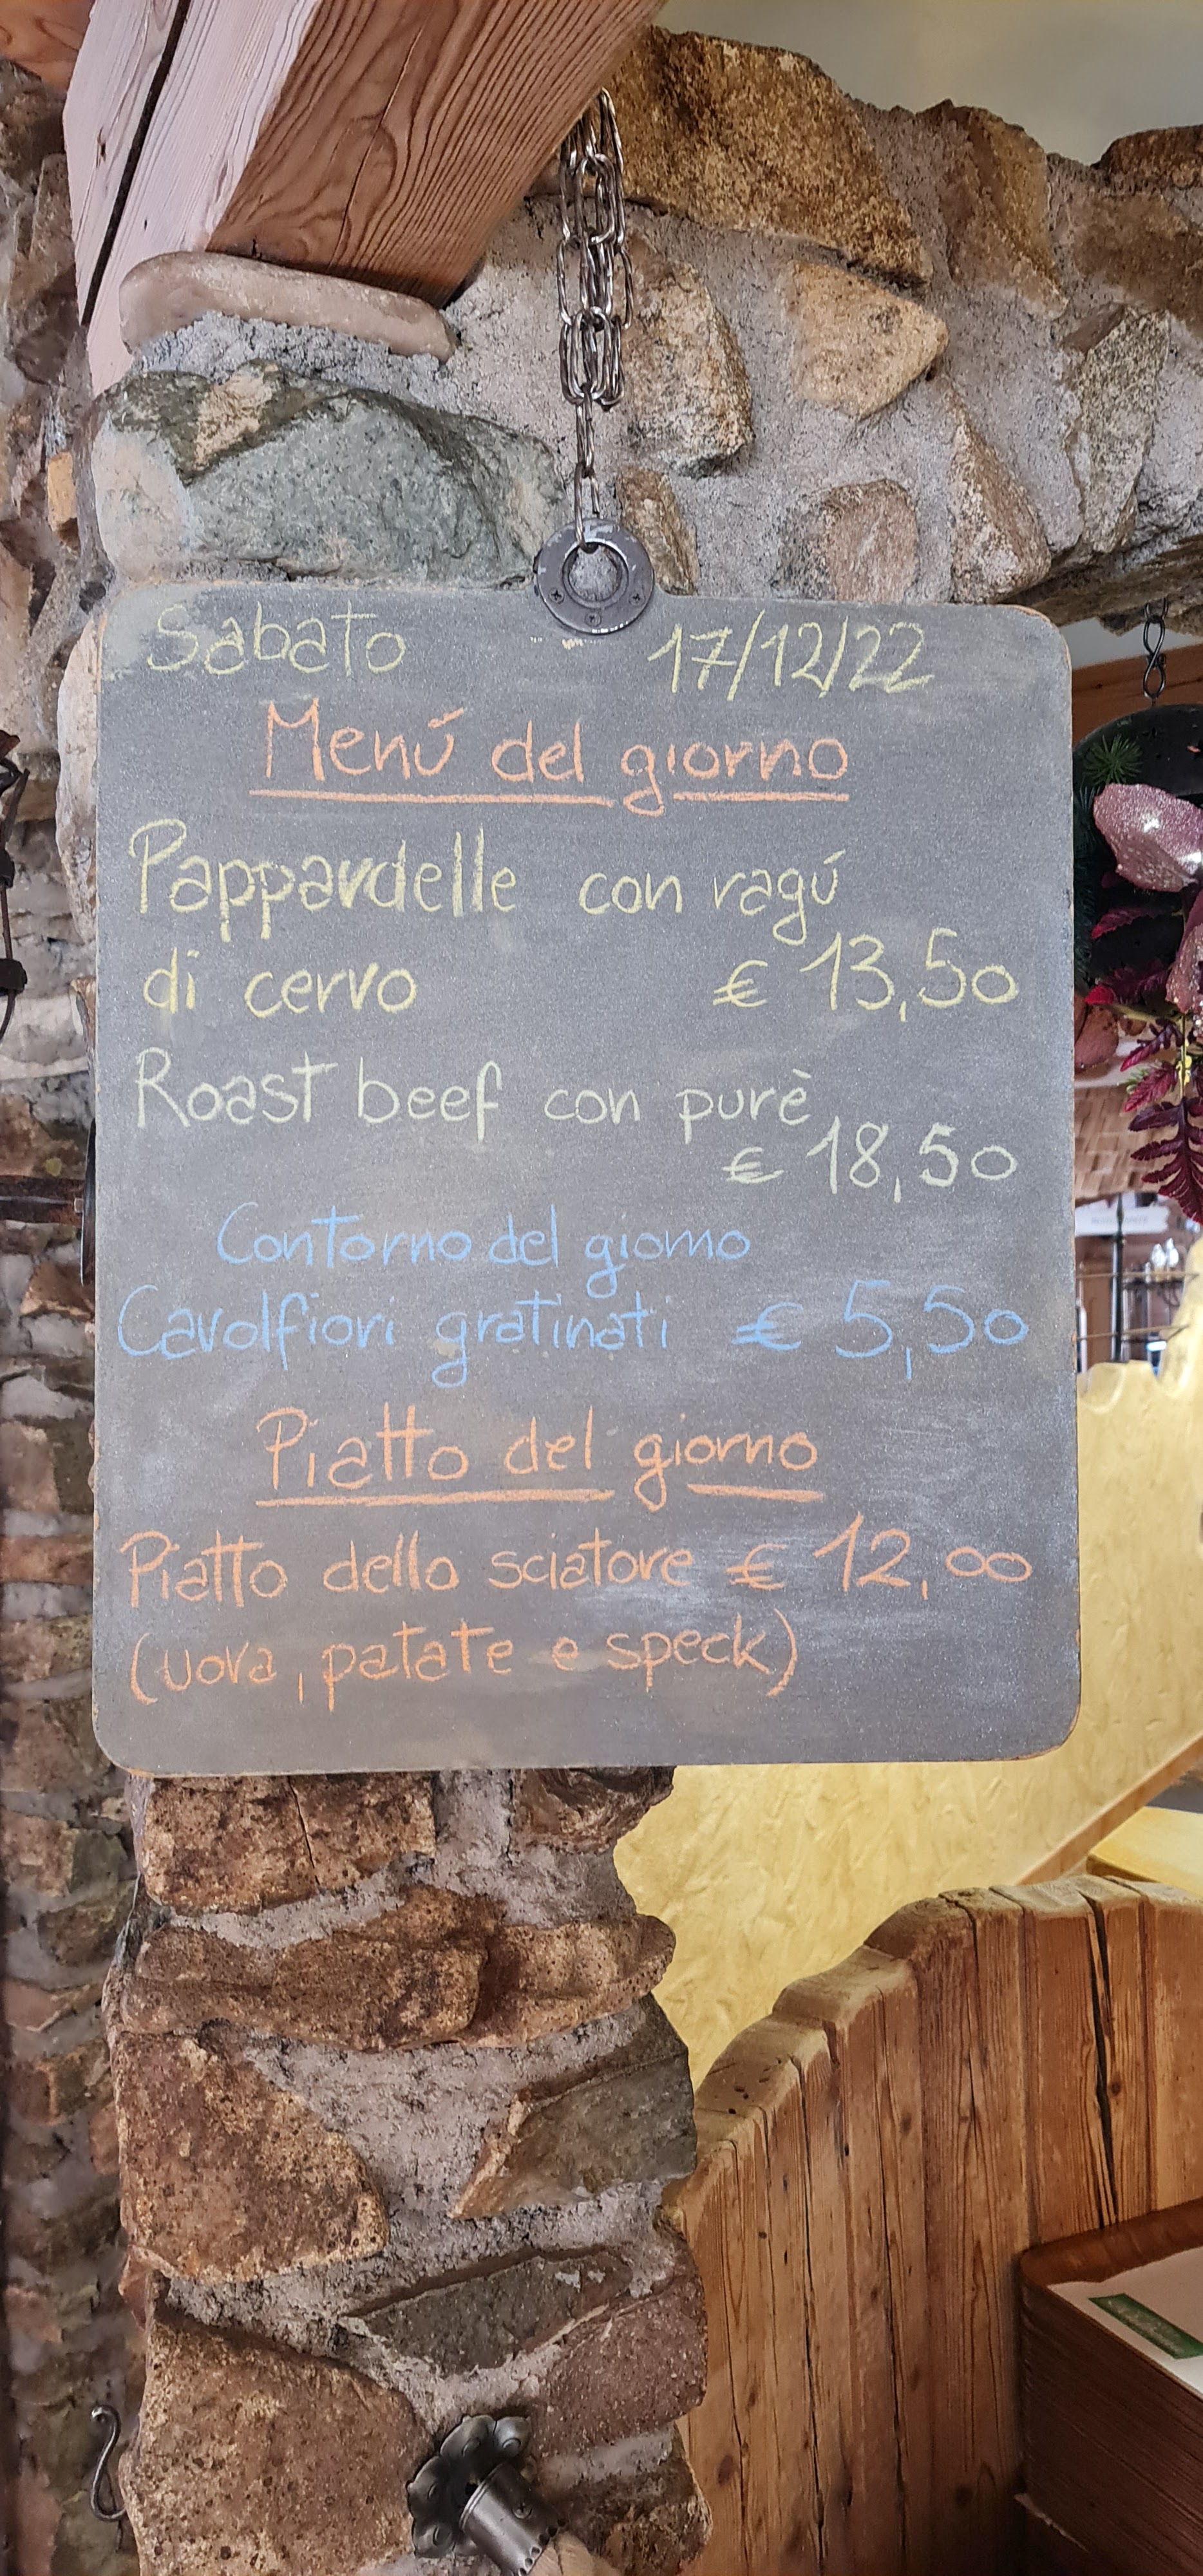 Sabato 17/12/22
Menú del giorno
Pappardelle con ragú
di cervo € 13,50
Roast beef con purè
€ 18,50
Contorno del giorno
Cavolfiori gratinati € 5,50
Piatto del giorno
Piatto dello sciatore € 12,00
(uova, patate e speck)